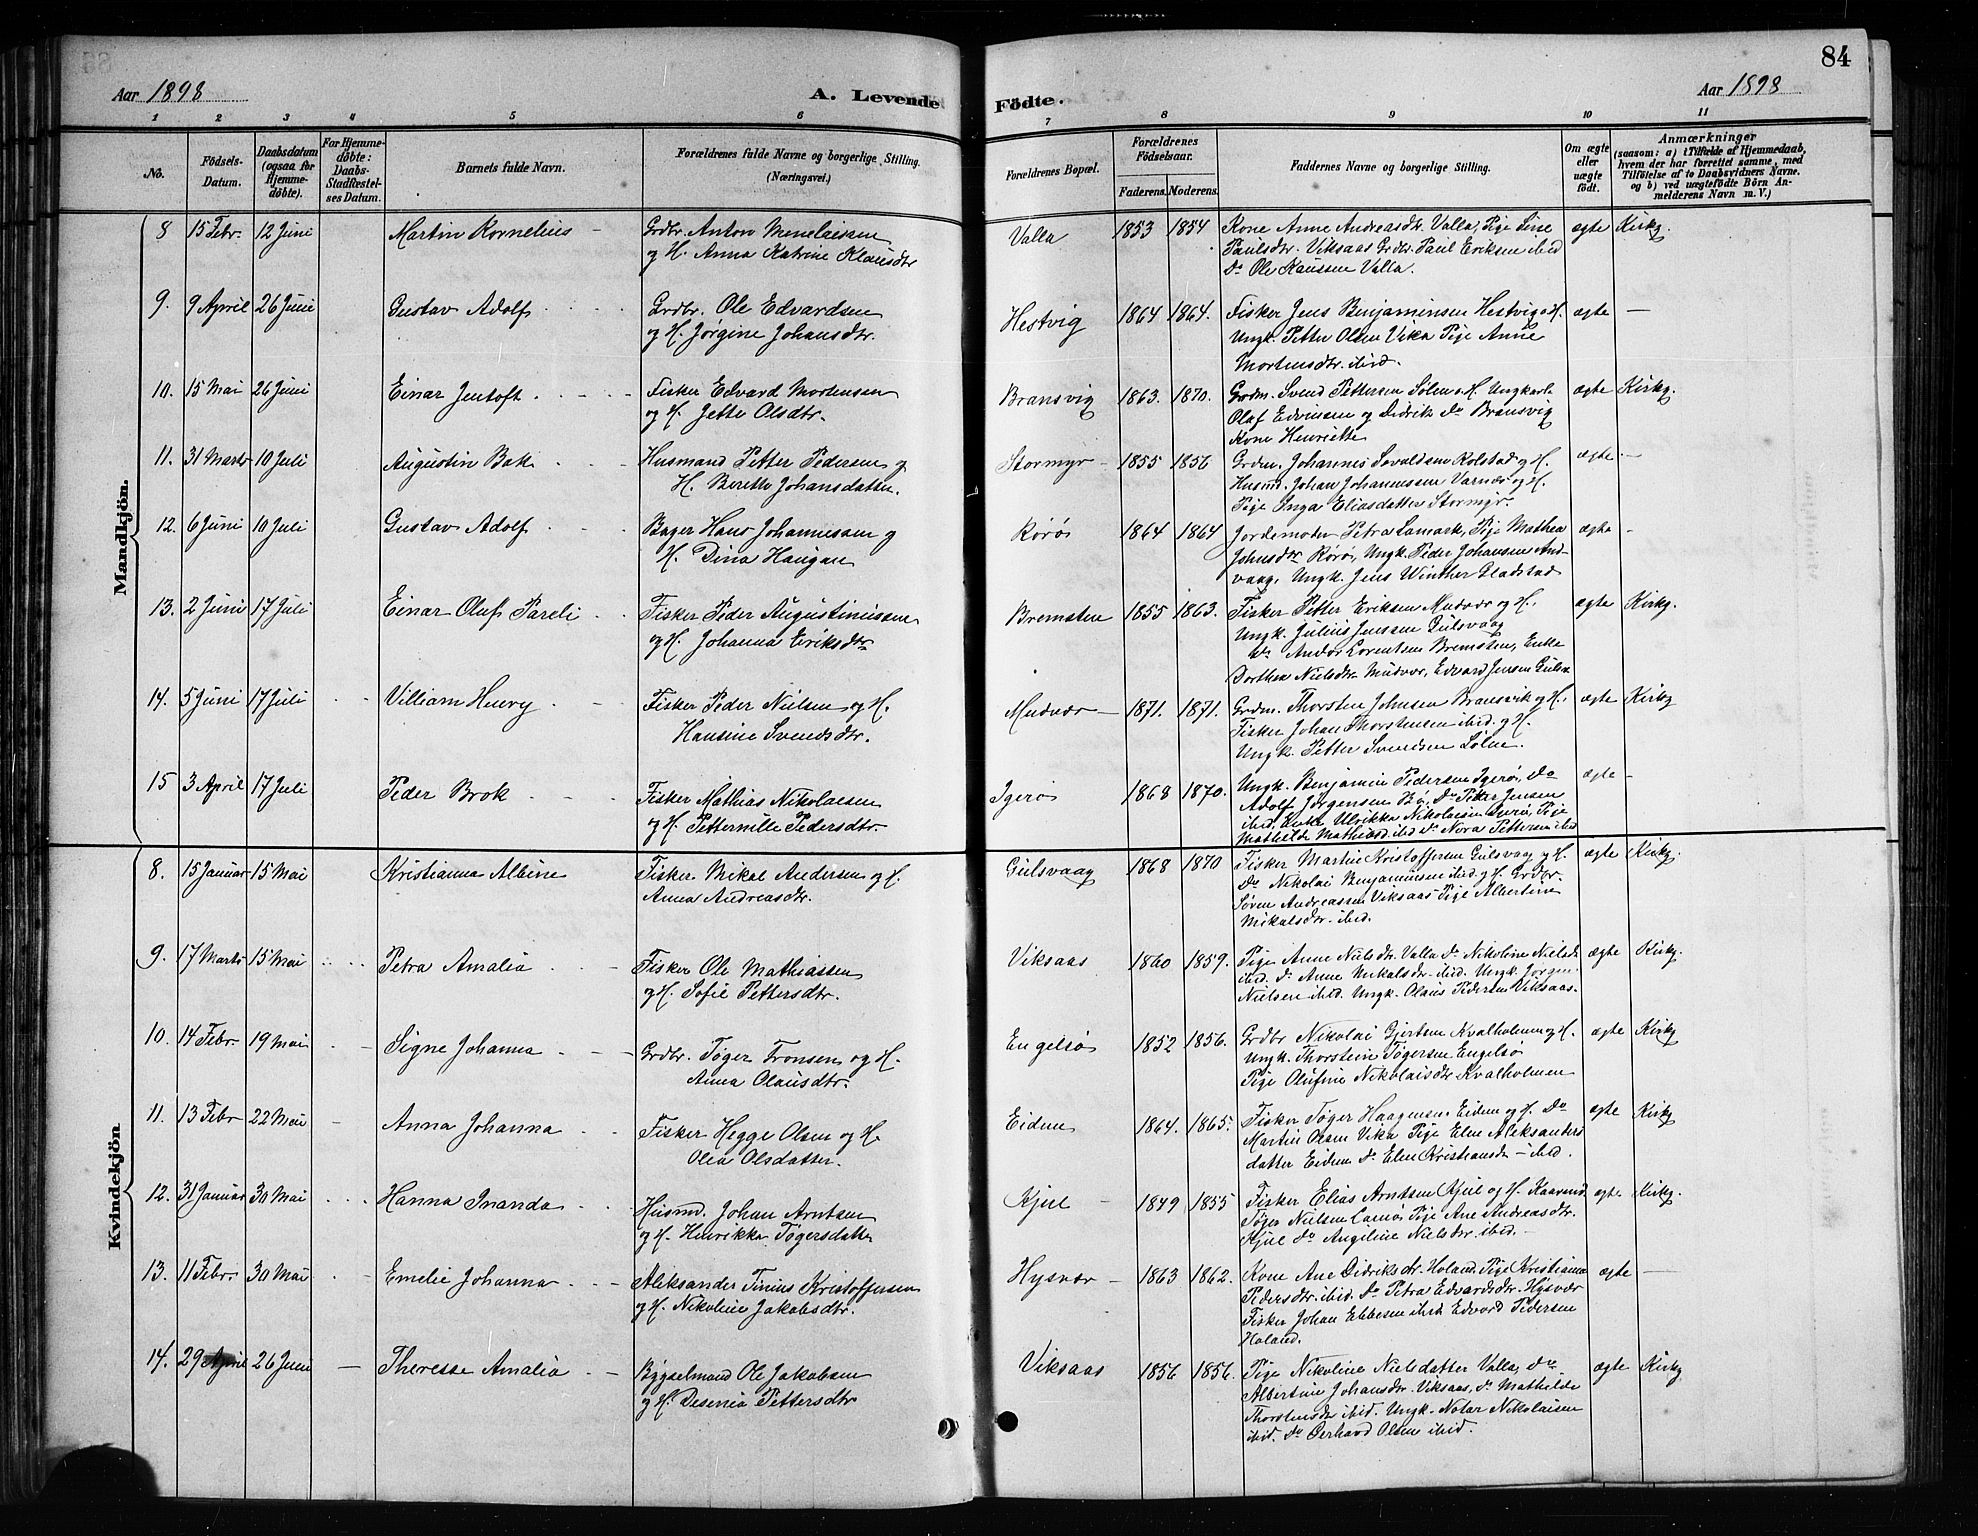 84
Aar 1898
A. Levende
Födte.
Aar 1898
1 2 3 4 5 6 7 8 9 10 11
No.
Födsels-
Datum.
Daabsdatum
(ogsaa for
Hjemme-
döbte).
For Hjemme-
döbte:
Daabs-
Stadfæstel-
ses Datum.
Barnets fulde Navn.
Forældrenes fulde Navne og borgerlige Stilling.
(Næringsvei.)
Forældrenes Bopæl.
Forældrenes
Födselsaar.
Faderens. Moderens.
Faddernes Navne og borgerlige Stilling.
Om ægte
eller
uægte
födt.
Anmærkninger
(saasom: a) i Tilfælde af Hjemmedaab,
hvem der har forrettet samme, med
Tilföielse af to Daabsvidners Navne.
og b) ved uægtefödte Börn An-
melderens Navn m. V.)
Mandkjön.
8 15 Febr. 12 Juni Martin Kornelius - Grdbr. Anton Menelaissen
og H. Anna Katrine Klausdtr
Valla 1853 1854 Kone Anne Andreasdtr. Valla, Pige Sine
Paulsdtr. Viksaas Grdbr. Paul Eriksen ibid
Do Ole Hansen Valla.
ægte Kirkg.
9. 9 April 26 Juni Gustav Adolf Grdbr. Ole Edvardsen
og H. Jørgine Johansdtr.
Hestvig 1864 1864. Fisker Jens Benjaminsen Hestvig og H.
Ungk. Petter Olsen Vika Pige Anne
Mortensdtr. ibid.
ægte -
10. 15 Mai 26 Juni Einar Jentoft Fisker Edvard Mortensen
og H. Jette Olsdtr.
Bransvig 1863. 1870. Grdm. Svend Pettersen Sølen og H. Ungkarle
Olaf Edvinsen og Didrik Do Bransvig
Kone Henriette
ægte Kirkg.
11. 31 Marts 10 Juli Augustin Bak Husmand Petter Pedersen og
H. Berethe Johansdatter.
Stormyr 1855 1856 Grdm. Johannes Sevaldsen Rolstad og H.
Husmd. Johan Johannessen Varnæs og H.
Pige Inga Eliasdatter Stormyr.
ægte -
12. 6 Juni 10 Juli Gustav Adolf Bager Hans Johannessen og
H. Dina Haugan
Rørøi 1864 1864 Jordemoder Petra Lamark, Pige Mathea
Johnsdtr Rørøi, Ungk. Peder Johansen And-
vaag, Ungk. Jens Winther Gladstad
ægte -
13. 2 Juni 17 Juli Einar Oluf Pareli Fisker Peder Augustinussen
og H. Johanna Eriksdtr
Bremsten 1855 1863. Fisker Petter Eriksen Mudvær og H.
Ungk. Julius Jenssen Gulsvaag
Do Andor Lorentsen Bremsten, Enke
Dorthea Nielsdtr. Mudvær, Edvard Jensen Gulsv.
ægte Kirkg.
14. 5 Juni 17 Juli Villiam Henry Fisker Peder Nielsen og H.
Hansine Svendsdtr.
Mudvær 1871. 1871. Grdm. Thorsten Johnsen Bransvik og H.
Fisker Johan Thorstensen ibid. og H.
Ungk. Petter Svendsen Sølen.
ægte Kirkg
15 3 April 17 Juli Peder Brok Fisker Mathias Nikolaisen
og H. Petternille Pedersdtr.
Igerøi 1868 1870. Ungk. Benjamin Pedersen Igerøi, Do
Adolf Jørgensen Bø, Do Peter Jensen
ibid. Enke Ulrikka Nikolaisen Igerøi, Pige
Mathilde Mathiasd. ibid Do Nora Pettersen ibid
ægte -
Kvindekjön
8. 15 Januar 15 Mai Kristianna Albine Fisker Mikal Andersen og H.
Anna Andreasdtr.
Gulsvaag 1868 1870 Fisker Martin Kristoffersen Gulsvaag og H.
Do Nikolai Benjaminsen ibid. og H. Grdbr.
Søren Andreassen Viksaas Pige Albertine
Mikalsdtr. ibid.
ægte Kirkg.
9. 17 Marts 15 Mai Petra Amalia Fisker Ole Mathiassen
og H. Sofie Pettersdtr.
Viksaas 1860 1859. Pige Anne Nielsdtr. Valla Do Nikoline Nielsd.
ibid. Do Anne Mikalsdtr. ibid. Ungk. Jørgen
Nielsen ibid. Ungk. Olaus Pedersen Viksaas.
ægte Kirkg.
10. 14 Febr 19 Mai Signe Johanna Grdbr. Tøger Tronsen og H.
Anna Olausdtr.
Engelsøi 1852 1856. Grdbr Nikolai Gjertsen Kvalholmen og H.
Ungk. Thorstein Tøgersen Engelsøi
Pige Olufine Nikolaisdtr Kvalholmen
ægte Kirkg
11. 13 Febr 22 Mai Anna Johanna Fisker Hegge Olsen og H.
Olea Olsdatter.
Eidem 1864. 1865. Fisker Tøger Haagensen Eidem og H. Do
Martin Olsen Vika Pige Elen Aleksanders
datter Eidem Do Elen Kristiansdr - ibid.
ægte Kirkg
12. 31 Januar 30 Mai Hanna Inanda Husmd. Johan Arntsen
og H. Henrikka Tøgersdatter
Kjul 1849 1855 Fisker Elias Arntsen Kjul og H.
Tøger Nielsen Pige Ane Andreasdtr.
Kjul Do Angeline Nielsdtr. ibid.
ægte Kirkg.
13. 11 Febr. 30 Mai Emelie Johanna Aleksander Tinius Kristoffersen
og H. Nikoline Jakobsdtr.
Hysvær 1863 1862. Kone Ane Didriksdr. Holand. Pige Kristianna
Pedersdtr. ibid. Do Petra Edvardsdtr. Hysvær
Fisker Johan Ebbesen ibid. Edvard Pedersen
Holand.
ægte -
14. 29 April 26 Juni Theresse Amalia Bygselmand Ole Jakobsen
og H. Desenia Pettersdtr
Viksaas 1856 1856. Pige Nikoline Nielsdatter Valla, Do
Albertine Johansdtr. Viksaas, Do Mathilde
Thorstensdr ibid. Ungk. Notar Nikolaisen
ibid. Do Gerhard Olsen ibid.
ægte Kirkg